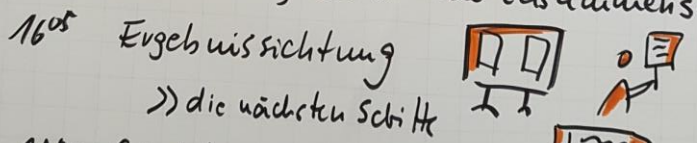 16⁰⁵ Ergebnissichtung
>> die nächsten Schritte